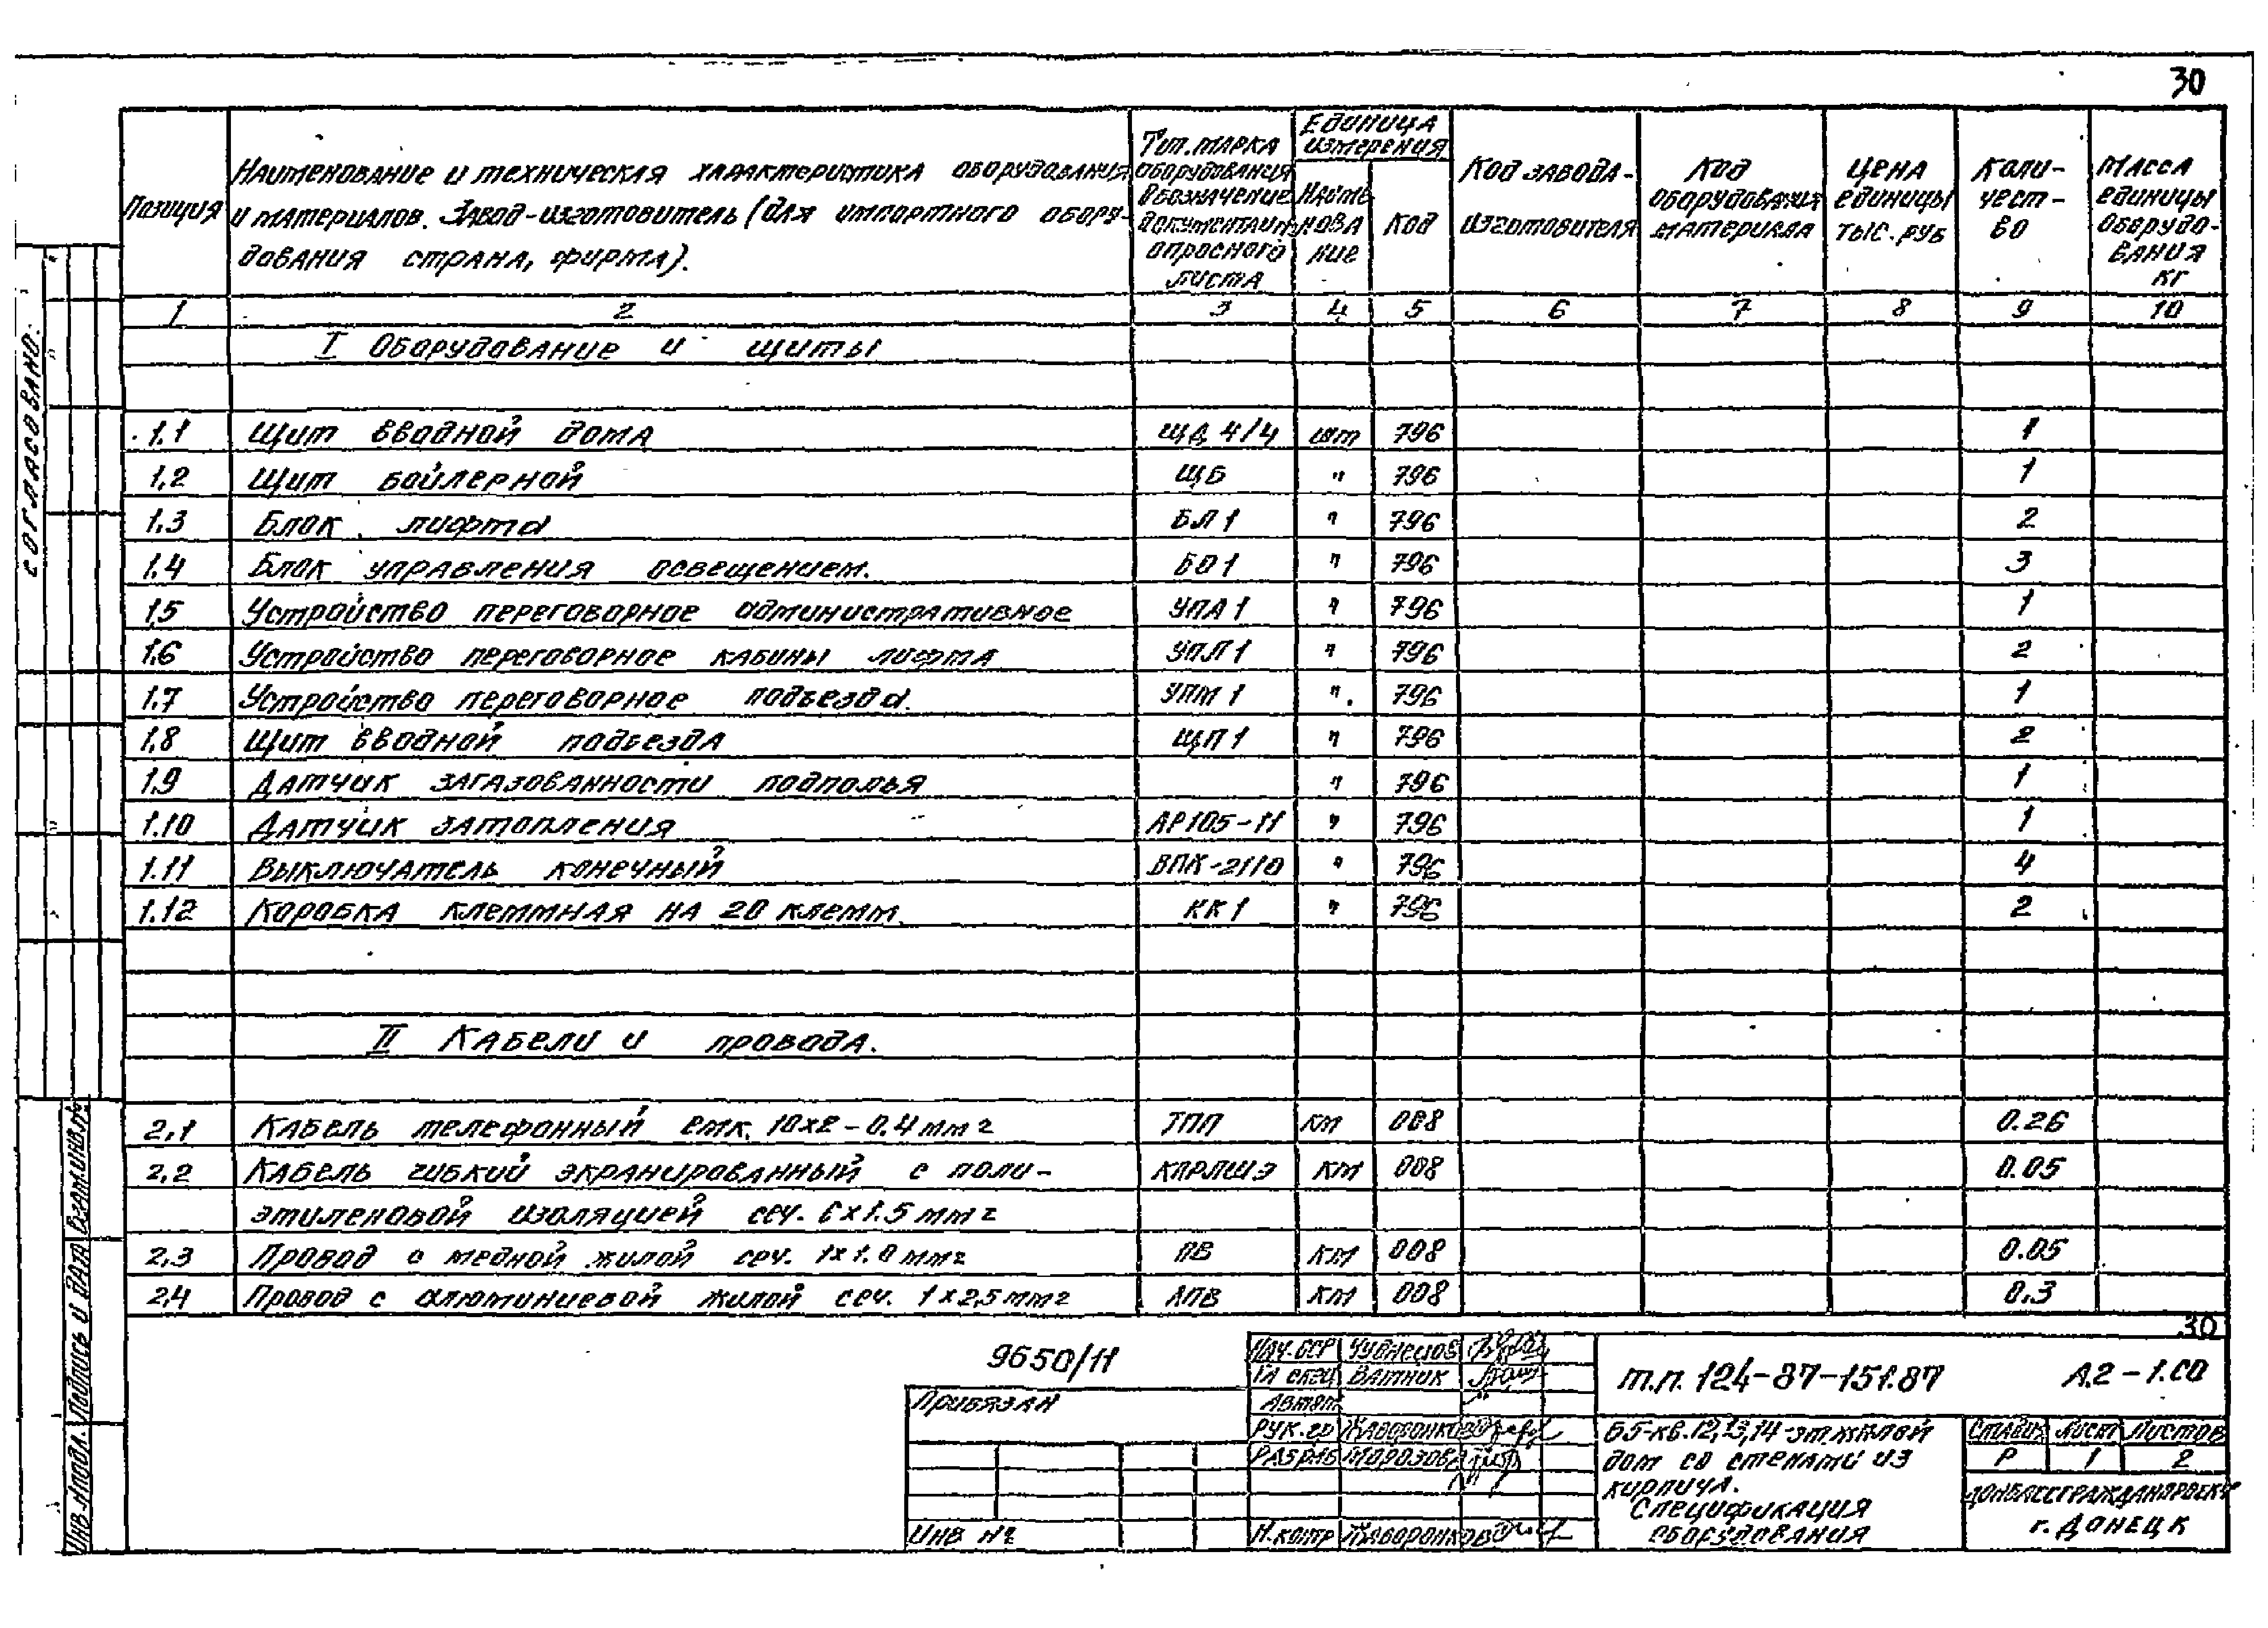 30
Позиция
Наименование и техническая характеристика оборудования
и материалов. Завод-изготовитель (для импортного обору-
дования страна, фирма).
Тип. марка
оборудования
Обозначение
документа и
опросного
листа
Единица
измерения
Наиме
нова
ние
Код
Код завода-
изготовителя
Код
оборудования
материала
Цена
единицы
тыс. руб
Коли-
чест-
во
Масса
единицы
оборудо-
вания
кг
1 2 3 4 5 6 7 8 9 10
I Оборудование и щиты
1.1 Щит вводной дома ЩД 4/4 шт 796 1
1.2 Щит бойлерной ЩБ " 796 1
1.3 Блок лифта БЛ 1 " 796 2
1.4 Блок управления освещением. БО 1 " 796 3
1.5 Устройство переговорное административное УПА 1 " 796 1
1.6 Устройство переговорное кабины лифта УПЛ 1 " 796 2
1.7 Устройство переговорное подъезда. УПМ 1 " 796 1
1.8 Щит вводной подъезда ЩП 1 " 796 2
1.9 Датчик загазованности подполья " 796 1
1.10 Датчик затопления АР105-11 " 796 1
1.11 Выключатель конечный ВПК-2110 " 796 4
1.12 Коробка клеммная на 20 клемм. КК 1 " 796 2
II Кабели и провода.
2.1 Кабель телефонный емк. 10х2-0.4мм2 ТПП км 008 0.26
2.2 Кабель гибкий экранированный с поли- КПРЛШЭ км 008 0.05
этиленовой изоляцией сеч. 6х1.5мм2
2.3 Провод с медной жилой сеч. 1х1.0мм2 ПВ км 008 0.05
2.4 Провод с алюминиевой жилой сеч. 1х2,5мм2 АПВ км 008 0.3
30
9650/11
Привязан
Инв №
Нач. ССР
Гл спец Ватник
Автом.
Рук. гр Жаворонкова
Разраб Морозова
Н.контр Жаворонкова
т.п. 124-87-151.87 А.2-1.СО
65-кв. 12,13,14-эт. жилой
дом со стенами из
кирпича.
Спецификация
оборудования
Стадия Лист Листов
Р 1 2
Донбассгражданпроект
г. Донецк
Согласовано:
Взам.инв.№
Подпись и дата
Инв.№подл.